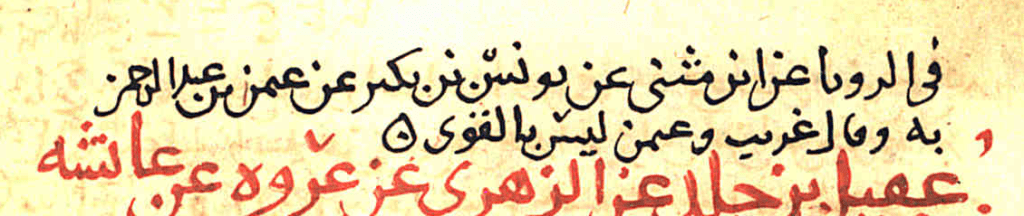 في الرويا عن ابن مثنى عن يونس بن بكير عن عثمن بن عبد الرحمن
به وقال غريب وعثمن ليس بالقوى
عقيل بن خلد عن الزهرى عن عروة عن عائشة